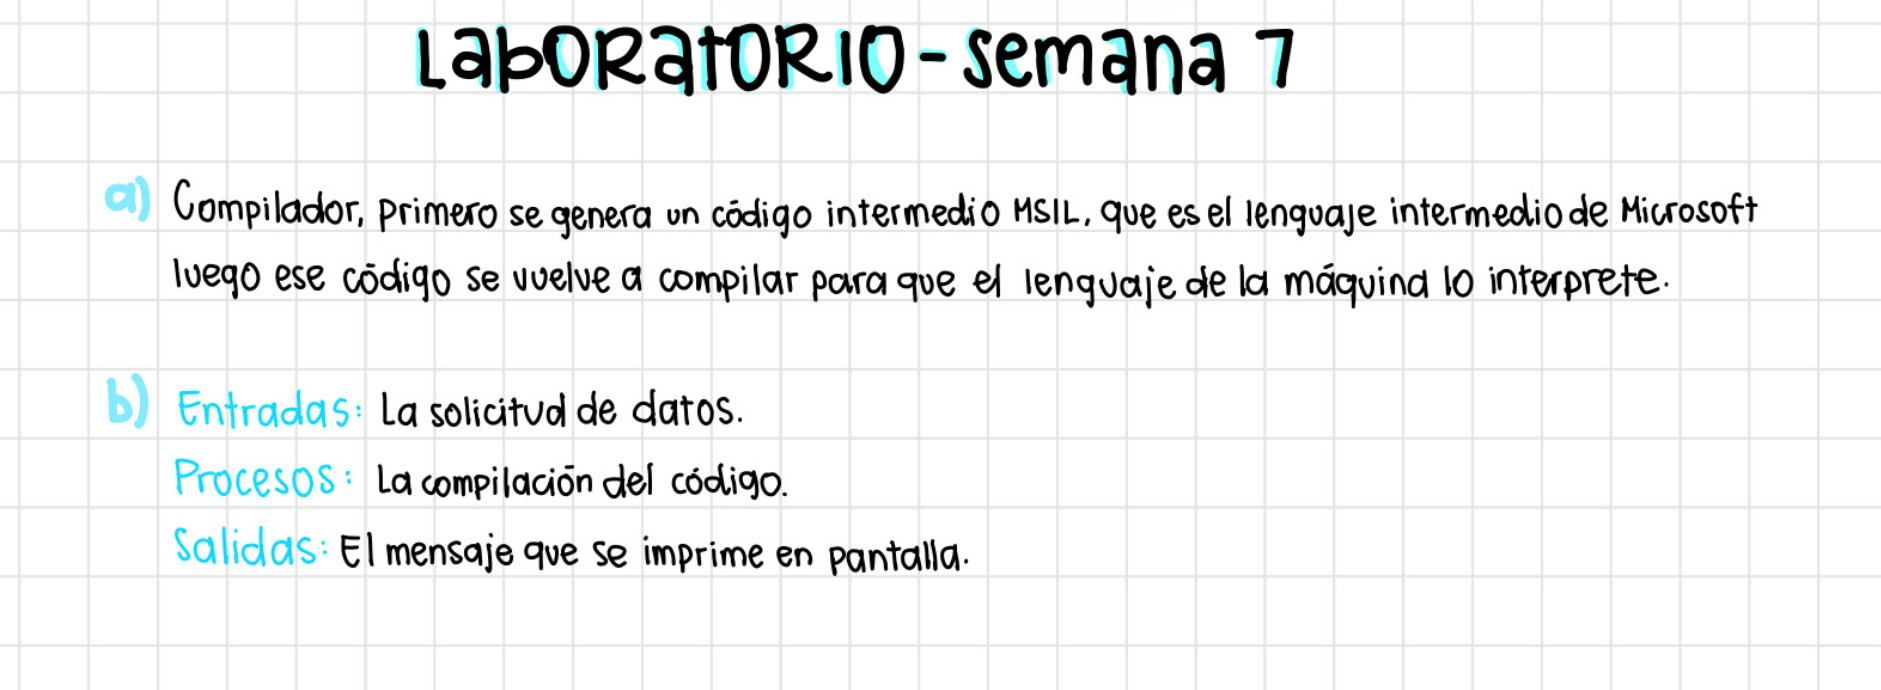 Laboratorio - Semana 7
a) Compilador, primero se genera un código intermedio MSIL, que es el lenguaje intermedio de Microsoft
luego ese código se vuelve a compilar para que el lenguaje de la máquina lo interprete.
b) Entradas: La solicitud de datos.
Procesos: La compilación del código.
Salidas: El mensaje que se imprime en pantalla.